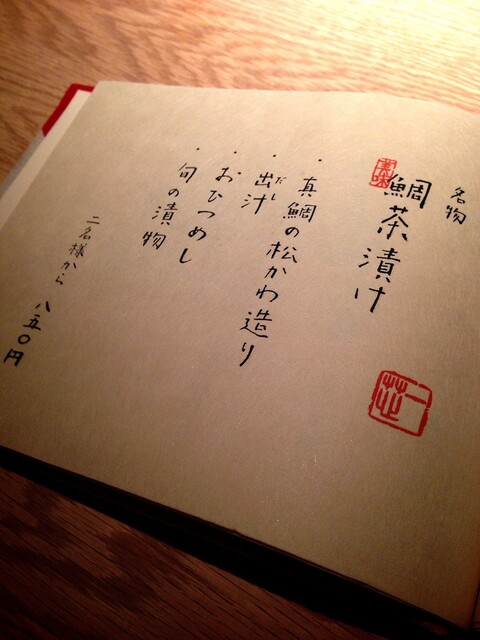 名物
鯛茶漬け
・真鯛の松かわ造り
・出汁
だし
・おひつめし
・旬の漬物
二名様から 八五〇円